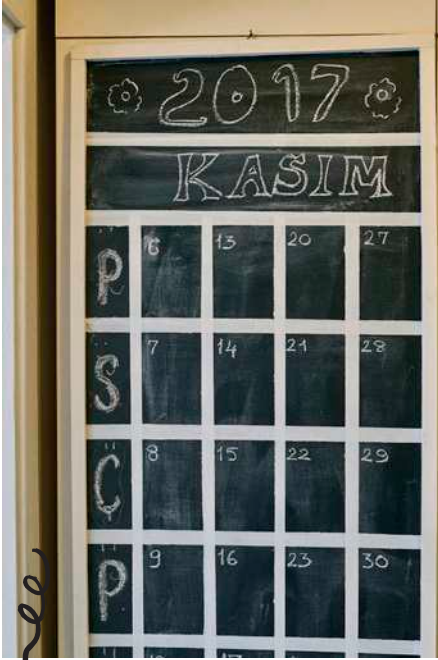 2017
KASIM
P 6 13 20 27
S 7 14 21 28
Ç 8 15 22 29
P 9 16 23 30